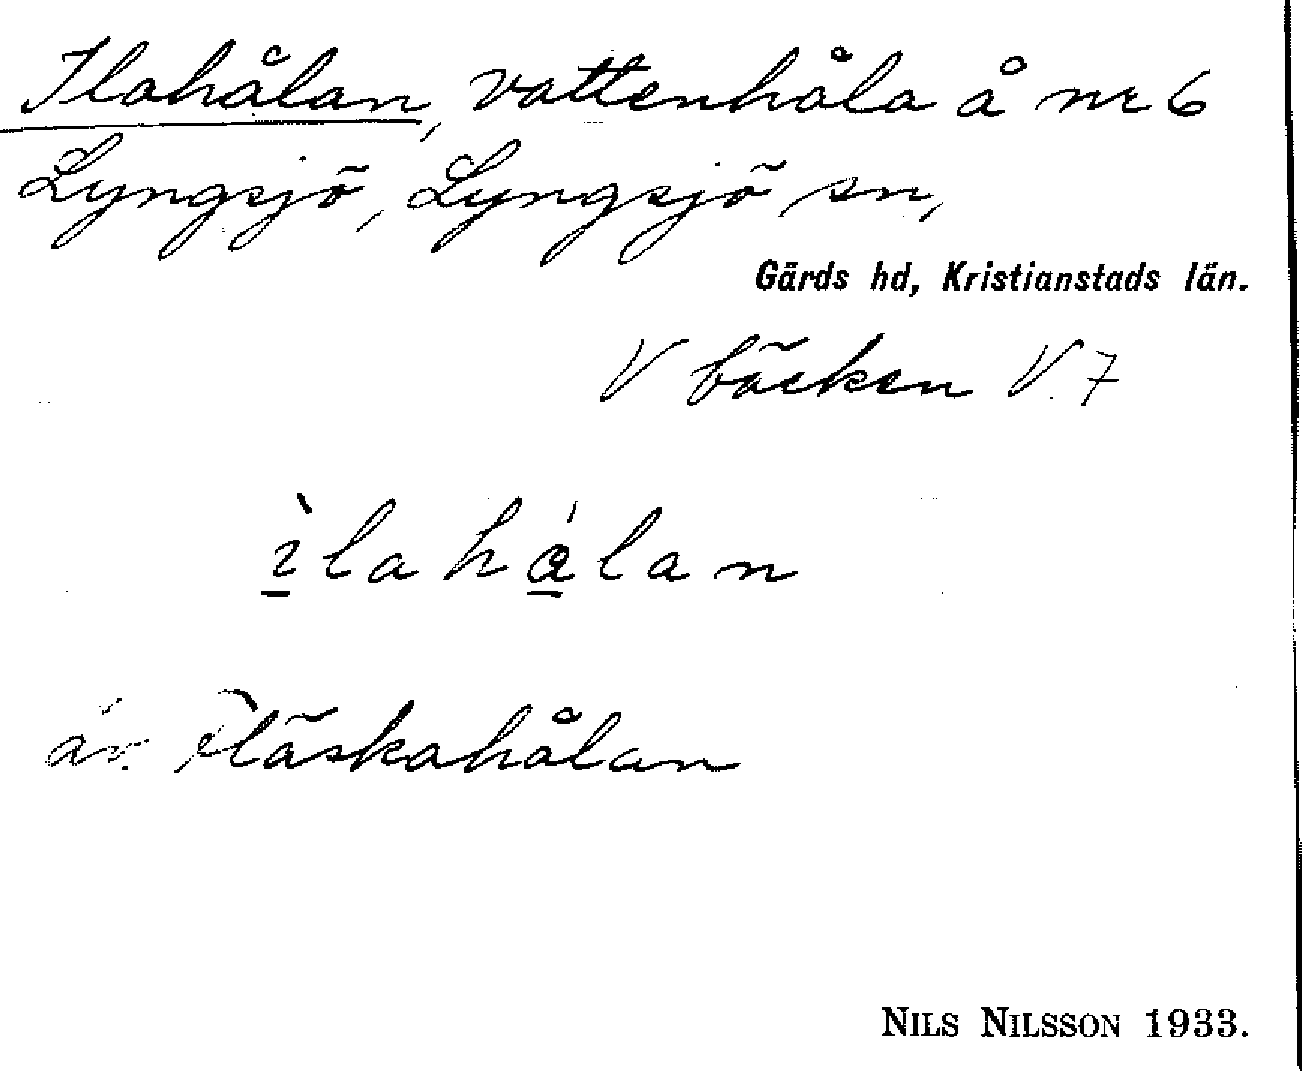 Ilahålan, vattenhåla å nr 6
Lyngsjö, Lyngsjö sn,
Gärds hd, Kristianstads län.
V bäcken V. 7
ìlahálan
äv. Fläskahålan
NILS NILSSON 1933.